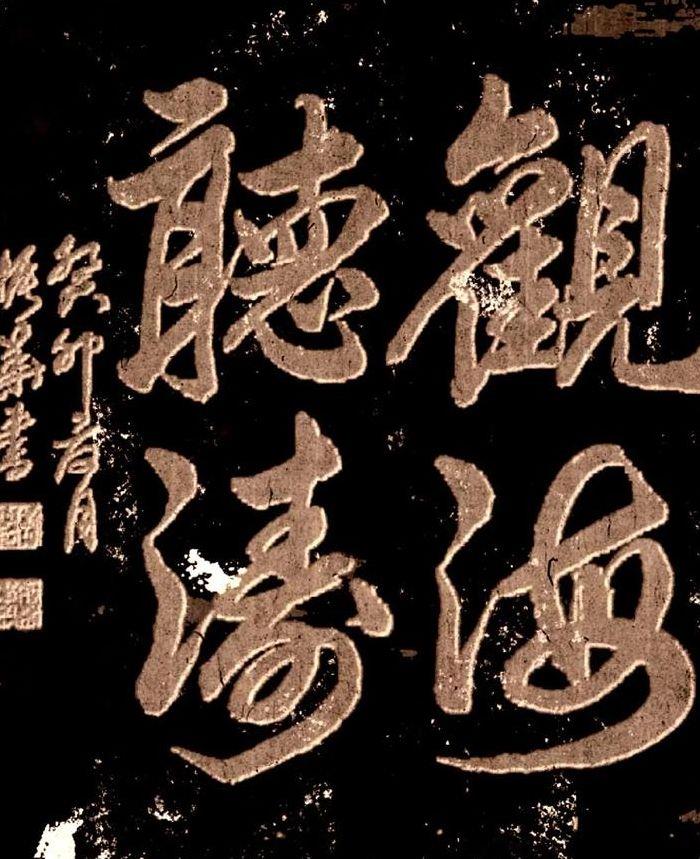 觀海
聽濤
癸卯春月
振華書